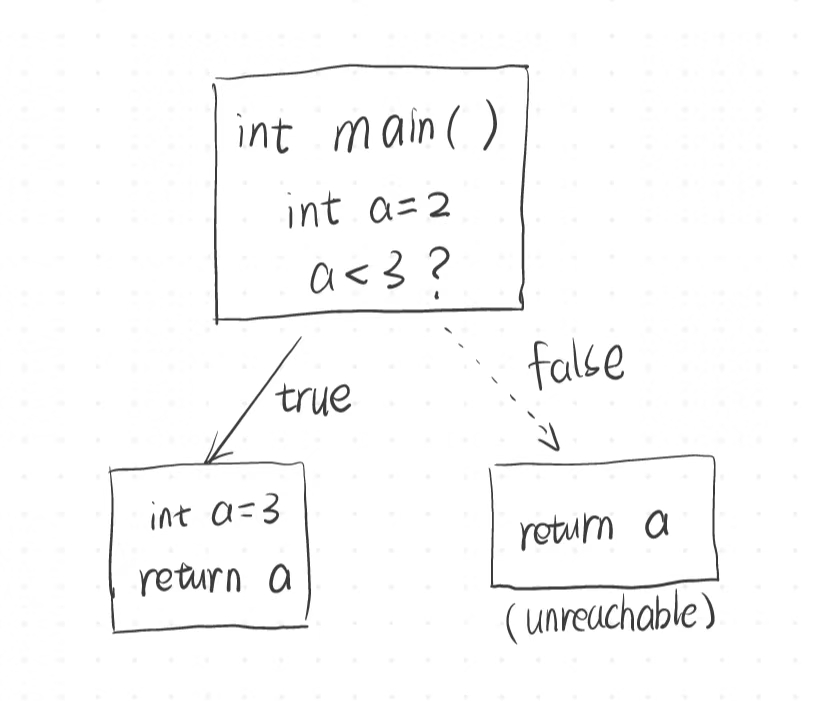 int main()
int a=2
a<3?
true
false
int a=3
return a
return a
(unreachable)